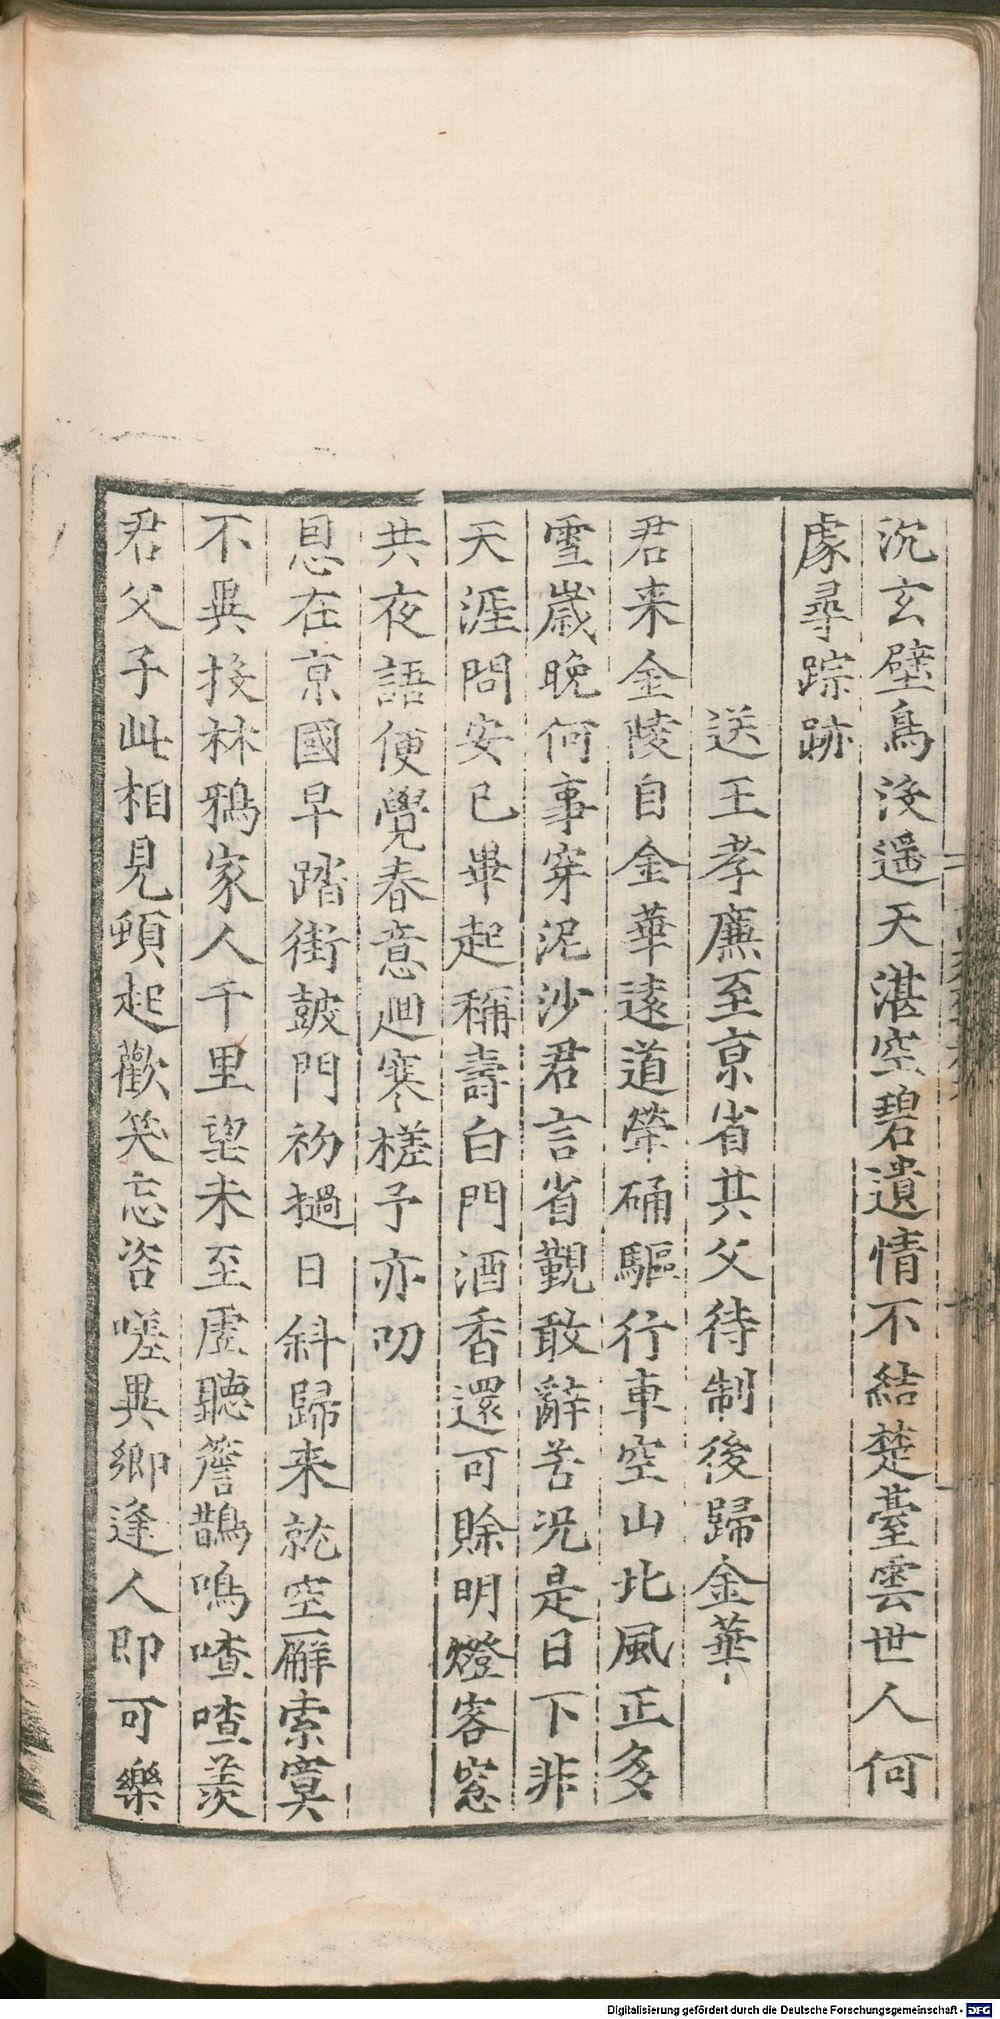 沉玄壁鳥没遥天湛空碧遺情不結楚臺雲世人何
處尋踪跡
送王孝廉至京省其父待制後歸金華
君来金陵自金華遠道犖确驅行車空山北風正多
雪歳晚何事穿泥沙君言省觀敢辭苦况是日下非
天涯問安已畢起稱壽白門酒香還可賒明燈客窓
共夜語便覺春意廻寒槎予亦叨
恩在京國早踏街鼓門初撾日斜歸来就空廨索寞
不異投林鴉家人千里望未至虚聽簷鵲鳴喳喳羨
君父子此相見頓起歡笑忘咨嗟異鄉逢人即可樂
Digitalisierung gefördert durch die Deutsche Forschungsgemeinschaft - DFG